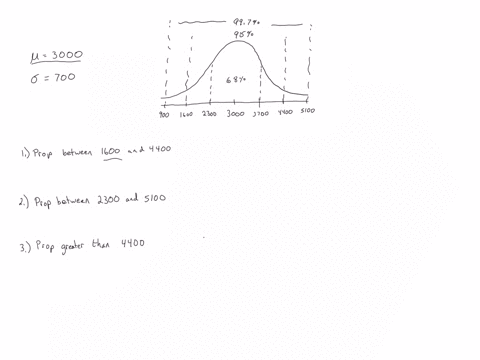 99.7%
95%
μ = 3000
σ = 700
68%
900 1600 2300 3000 3700 4400 5100
1.) Prop between 1600 and 4400
2.) Prop between 2300 and 5100
3.) Prop greater than 4400